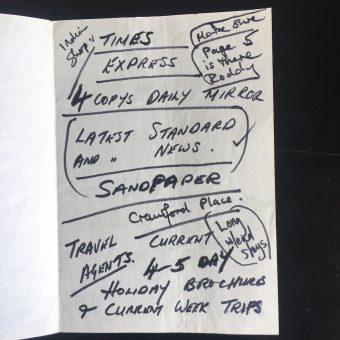 Indian
Shop
TIMES
EXPRESS
Make Sure
Page 5
is there
Roddy
4 COPYS DAILY MIRROR
LATEST STANDARD
AND " NEWS.
SANDPAPER
Crawford Place.
TRAVEL CURRENT
AGENTS. 4-5 DAY
Long
w/end
stays
HOLIDAY BROCHURES
& CURRENT WEEK TRIPS